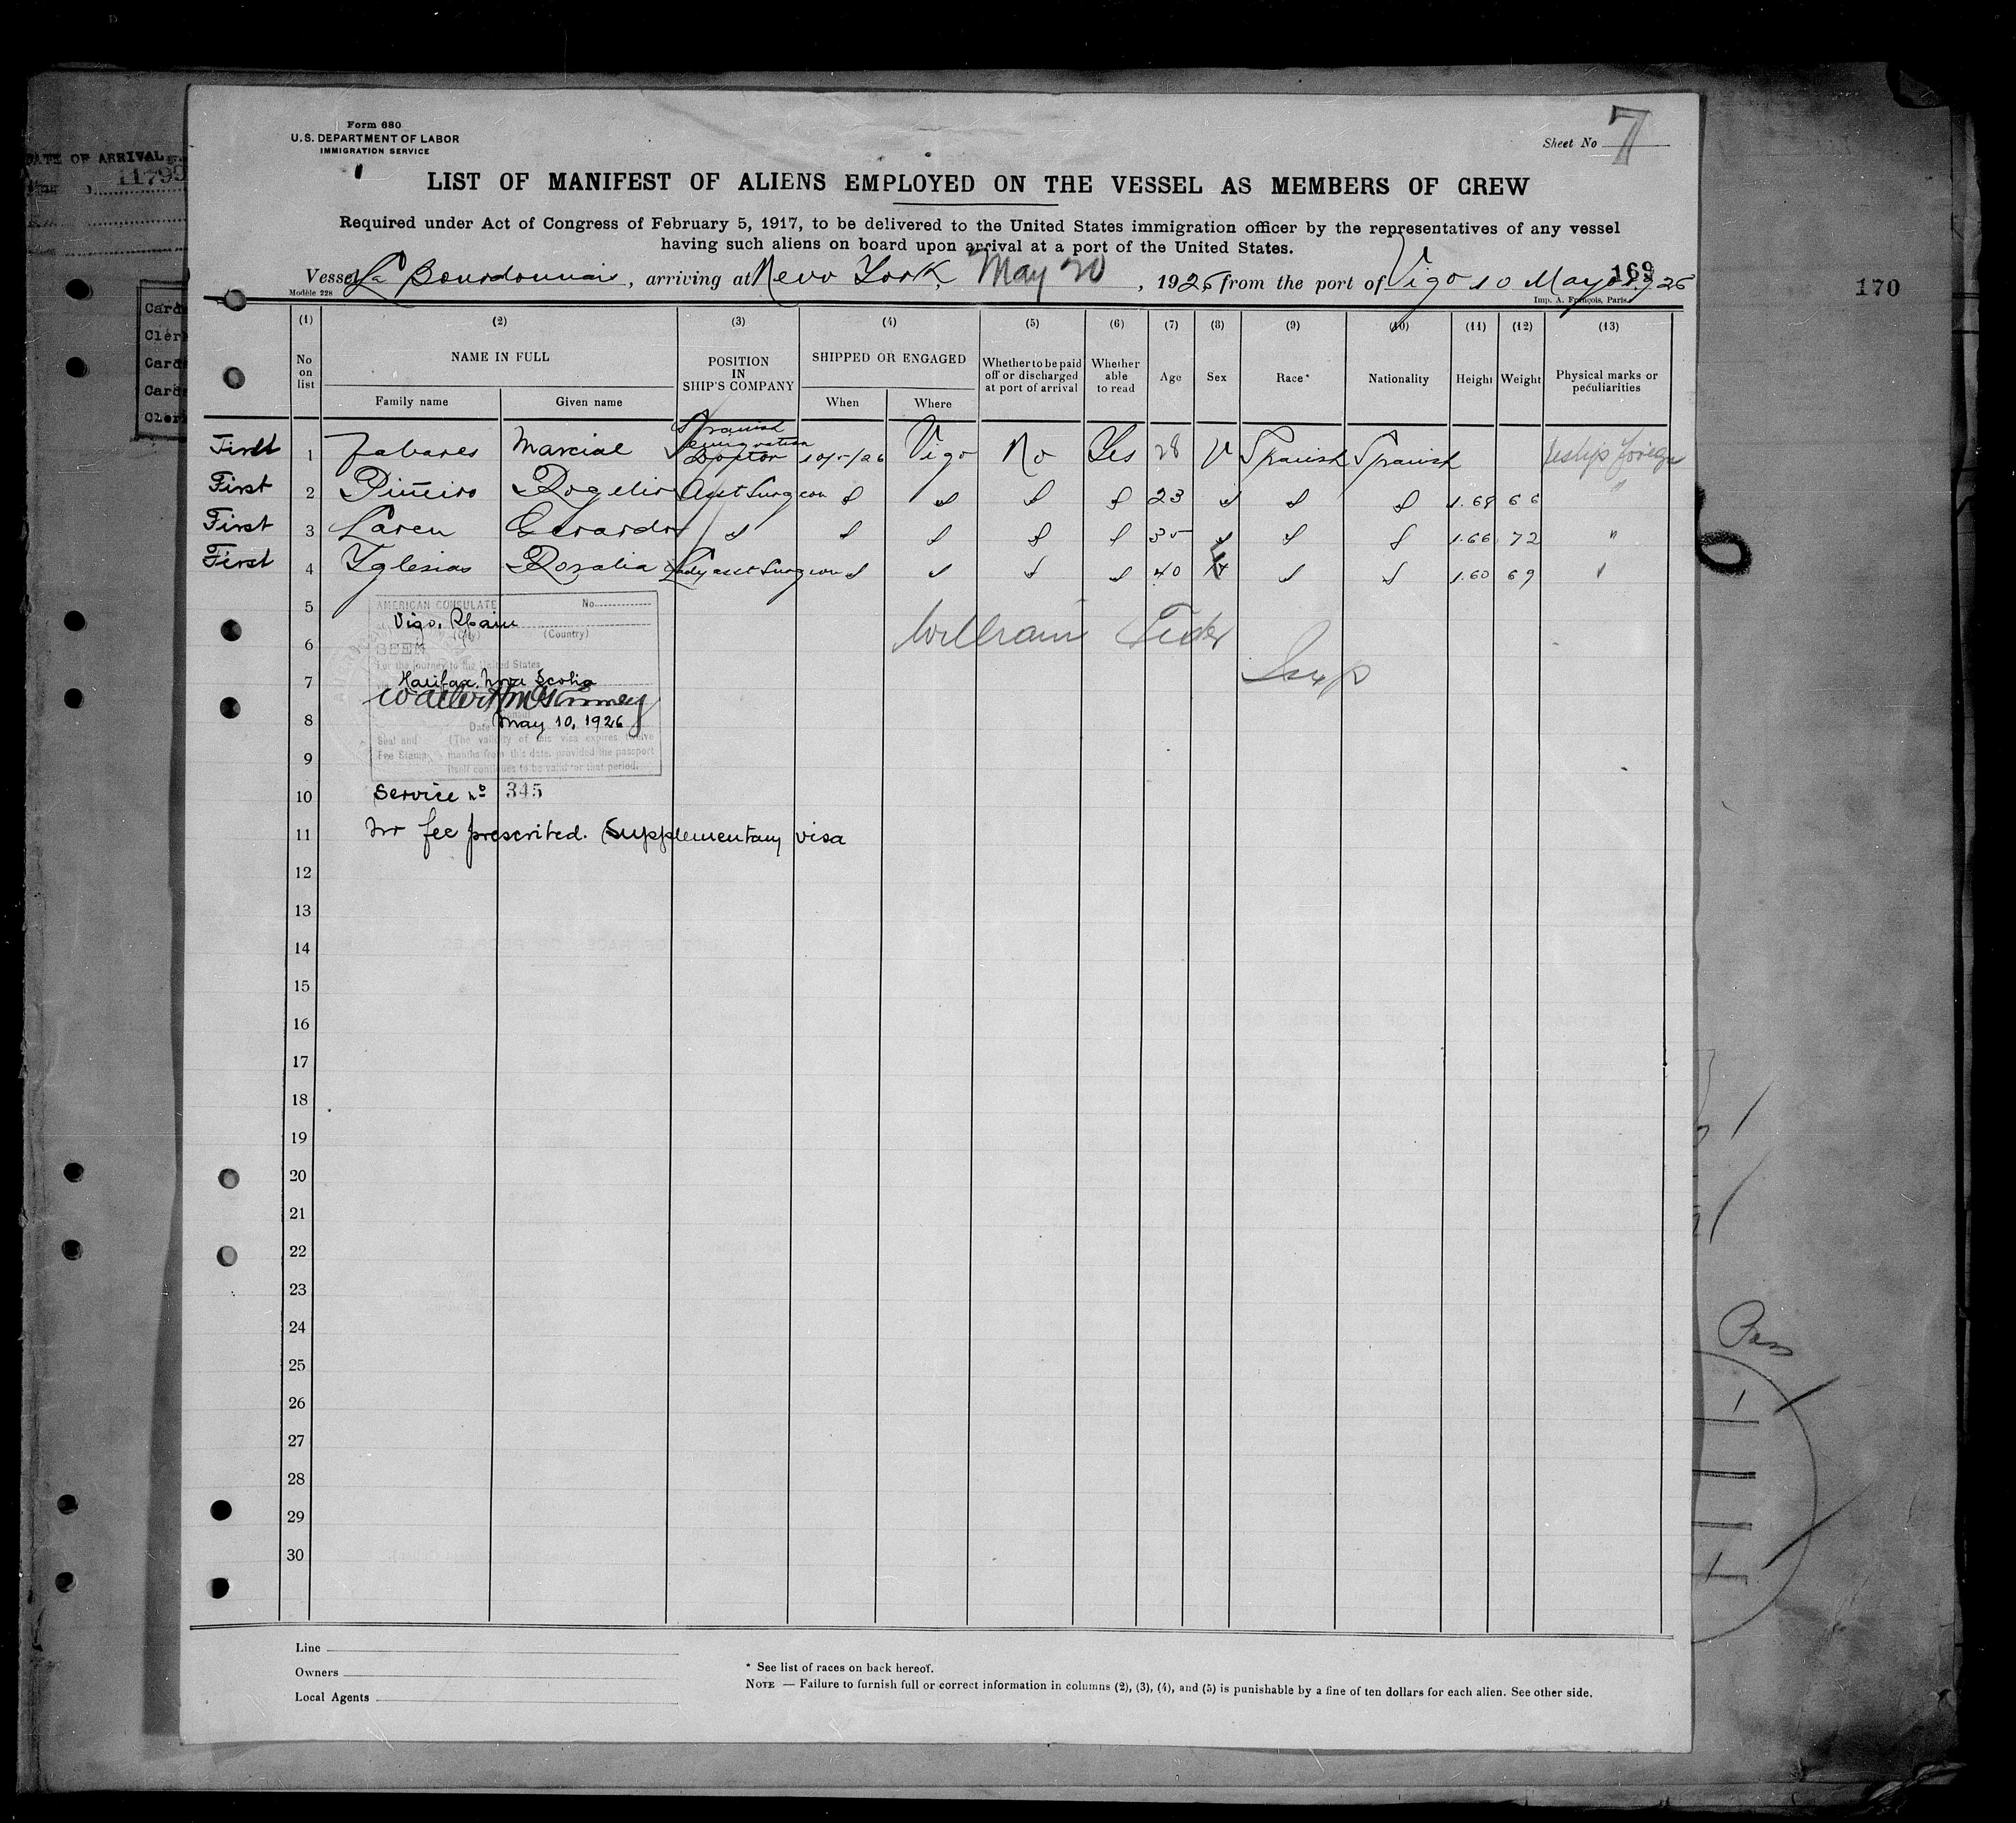 Form 680
U.S. DEPARTMENT OF LABOR
IMMIGRATION SERVICE
Sheet No 7
LIST OF MANIFEST OF ALIENS EMPLOYED ON THE VESSEL AS MEMBERS OF CREW
Required under Act of Congress of February 5, 1917, to be delivered to the United States immigration officer by the representatives of any vessel
having such aliens on board upon arrival at a port of the United States.
Vessel La Bourdonnais, arriving at New York, May 20, 1926 from the port of Vigo 10 May 1926
169
170
Modèle 228
Imp. A. François, Paris.
DATE OF ARRIVAL
11799
(1) (2) (3) (4) (5) (6) (7) (8) (9) (10) (11) (12) (13)
No on list
NAME IN FULL
Family name
Given name
POSITION IN SHIP'S COMPANY
SHIPPED OR ENGAGED
When
Where
Whether to be paid off or discharged at port of arrival
Whether able to read
Age
Sex
Race*
Nationality
Height
Weight
Physical marks or peculiarities
First 1 Tabares Marcial Spanish emigration Doctor 10/5/26 Vigo No Yes 28 V Spanish Spanish
First 2 Piñeiro Rogelio Asst Surgeon 23 1.68 66 "
First 3 Gerardo 35 1.66 72 "
First 4 Yglesias Rosalia Lady asst Surgeon 40 1.60 69 "
5
6
7
8
9
10
11
12
13
14
15
16
17
18
19
20
21
22
23
24
25
26
27
28
29
30
AMERICAN CONSULATE No.
Vigo, Spain
(City) (Country)
SEEN
For the journey to the United States
Halifax, Nova Scotia
May 10, 1926
Date
Seal and Fee Stamp
(The validity of this visa expires twelve
months from this date, provided the passport
itself continues to be valid for that period.
Service nº 345
No fee prescribed. Supplementary visa
William
Insp
Line
Owners
Local Agents
* See list of races on back hereof.
NOTE — Failure to furnish full or correct information in columns (2), (3), (4), and (5) is punishable by a fine of ten dollars for each alien. See other side.